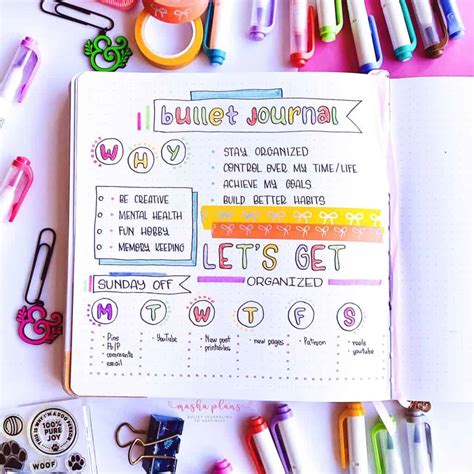 bullet journal
WHY
STAY ORGANIZED
CONTROL OVER MY TIME/LIFE
ACHIEVE MY GOALS
BUILD BETTER HABITS
BE CREATIVE
MENTAL HEALTH
FUN HOBBY
MEMORY KEEPING
LET'S GET
ORGANIZED
SUNDAY OFF
M T W T F S
Pins
FB/P
comments
email
YouTube
New post
printables
new pages
Patreon
reels
youtube
masha plans
BULLET JOURNALING
TO HAPPINESS
100% PURE
JOY
WOOF